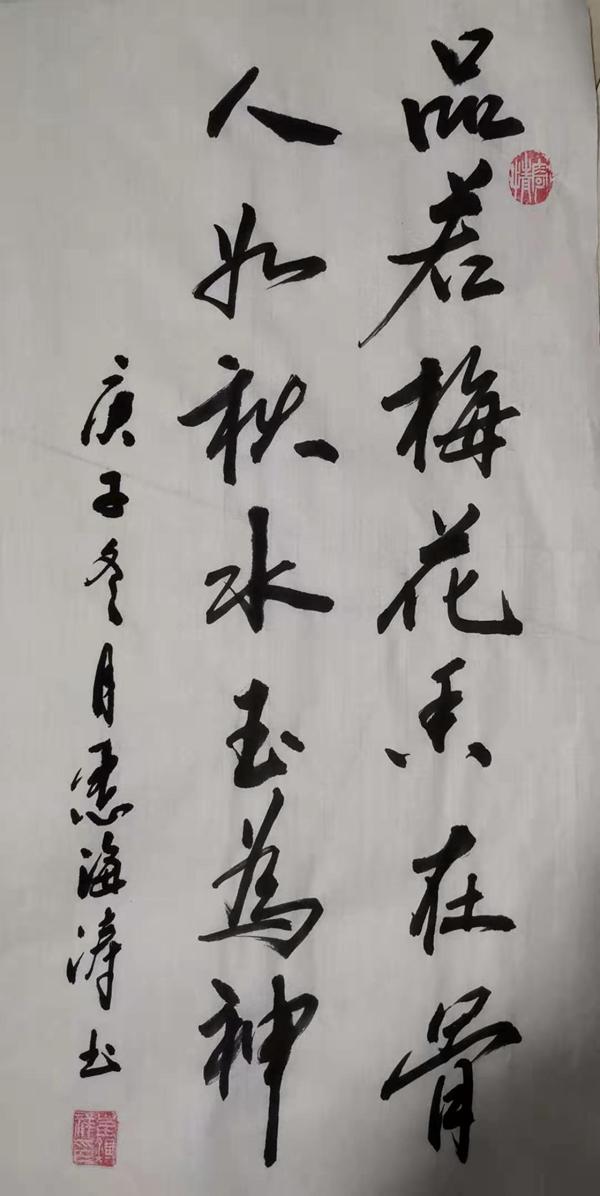 品若梅花香在骨
人如秋水玉為神
庚子冬月海涛书
寄情